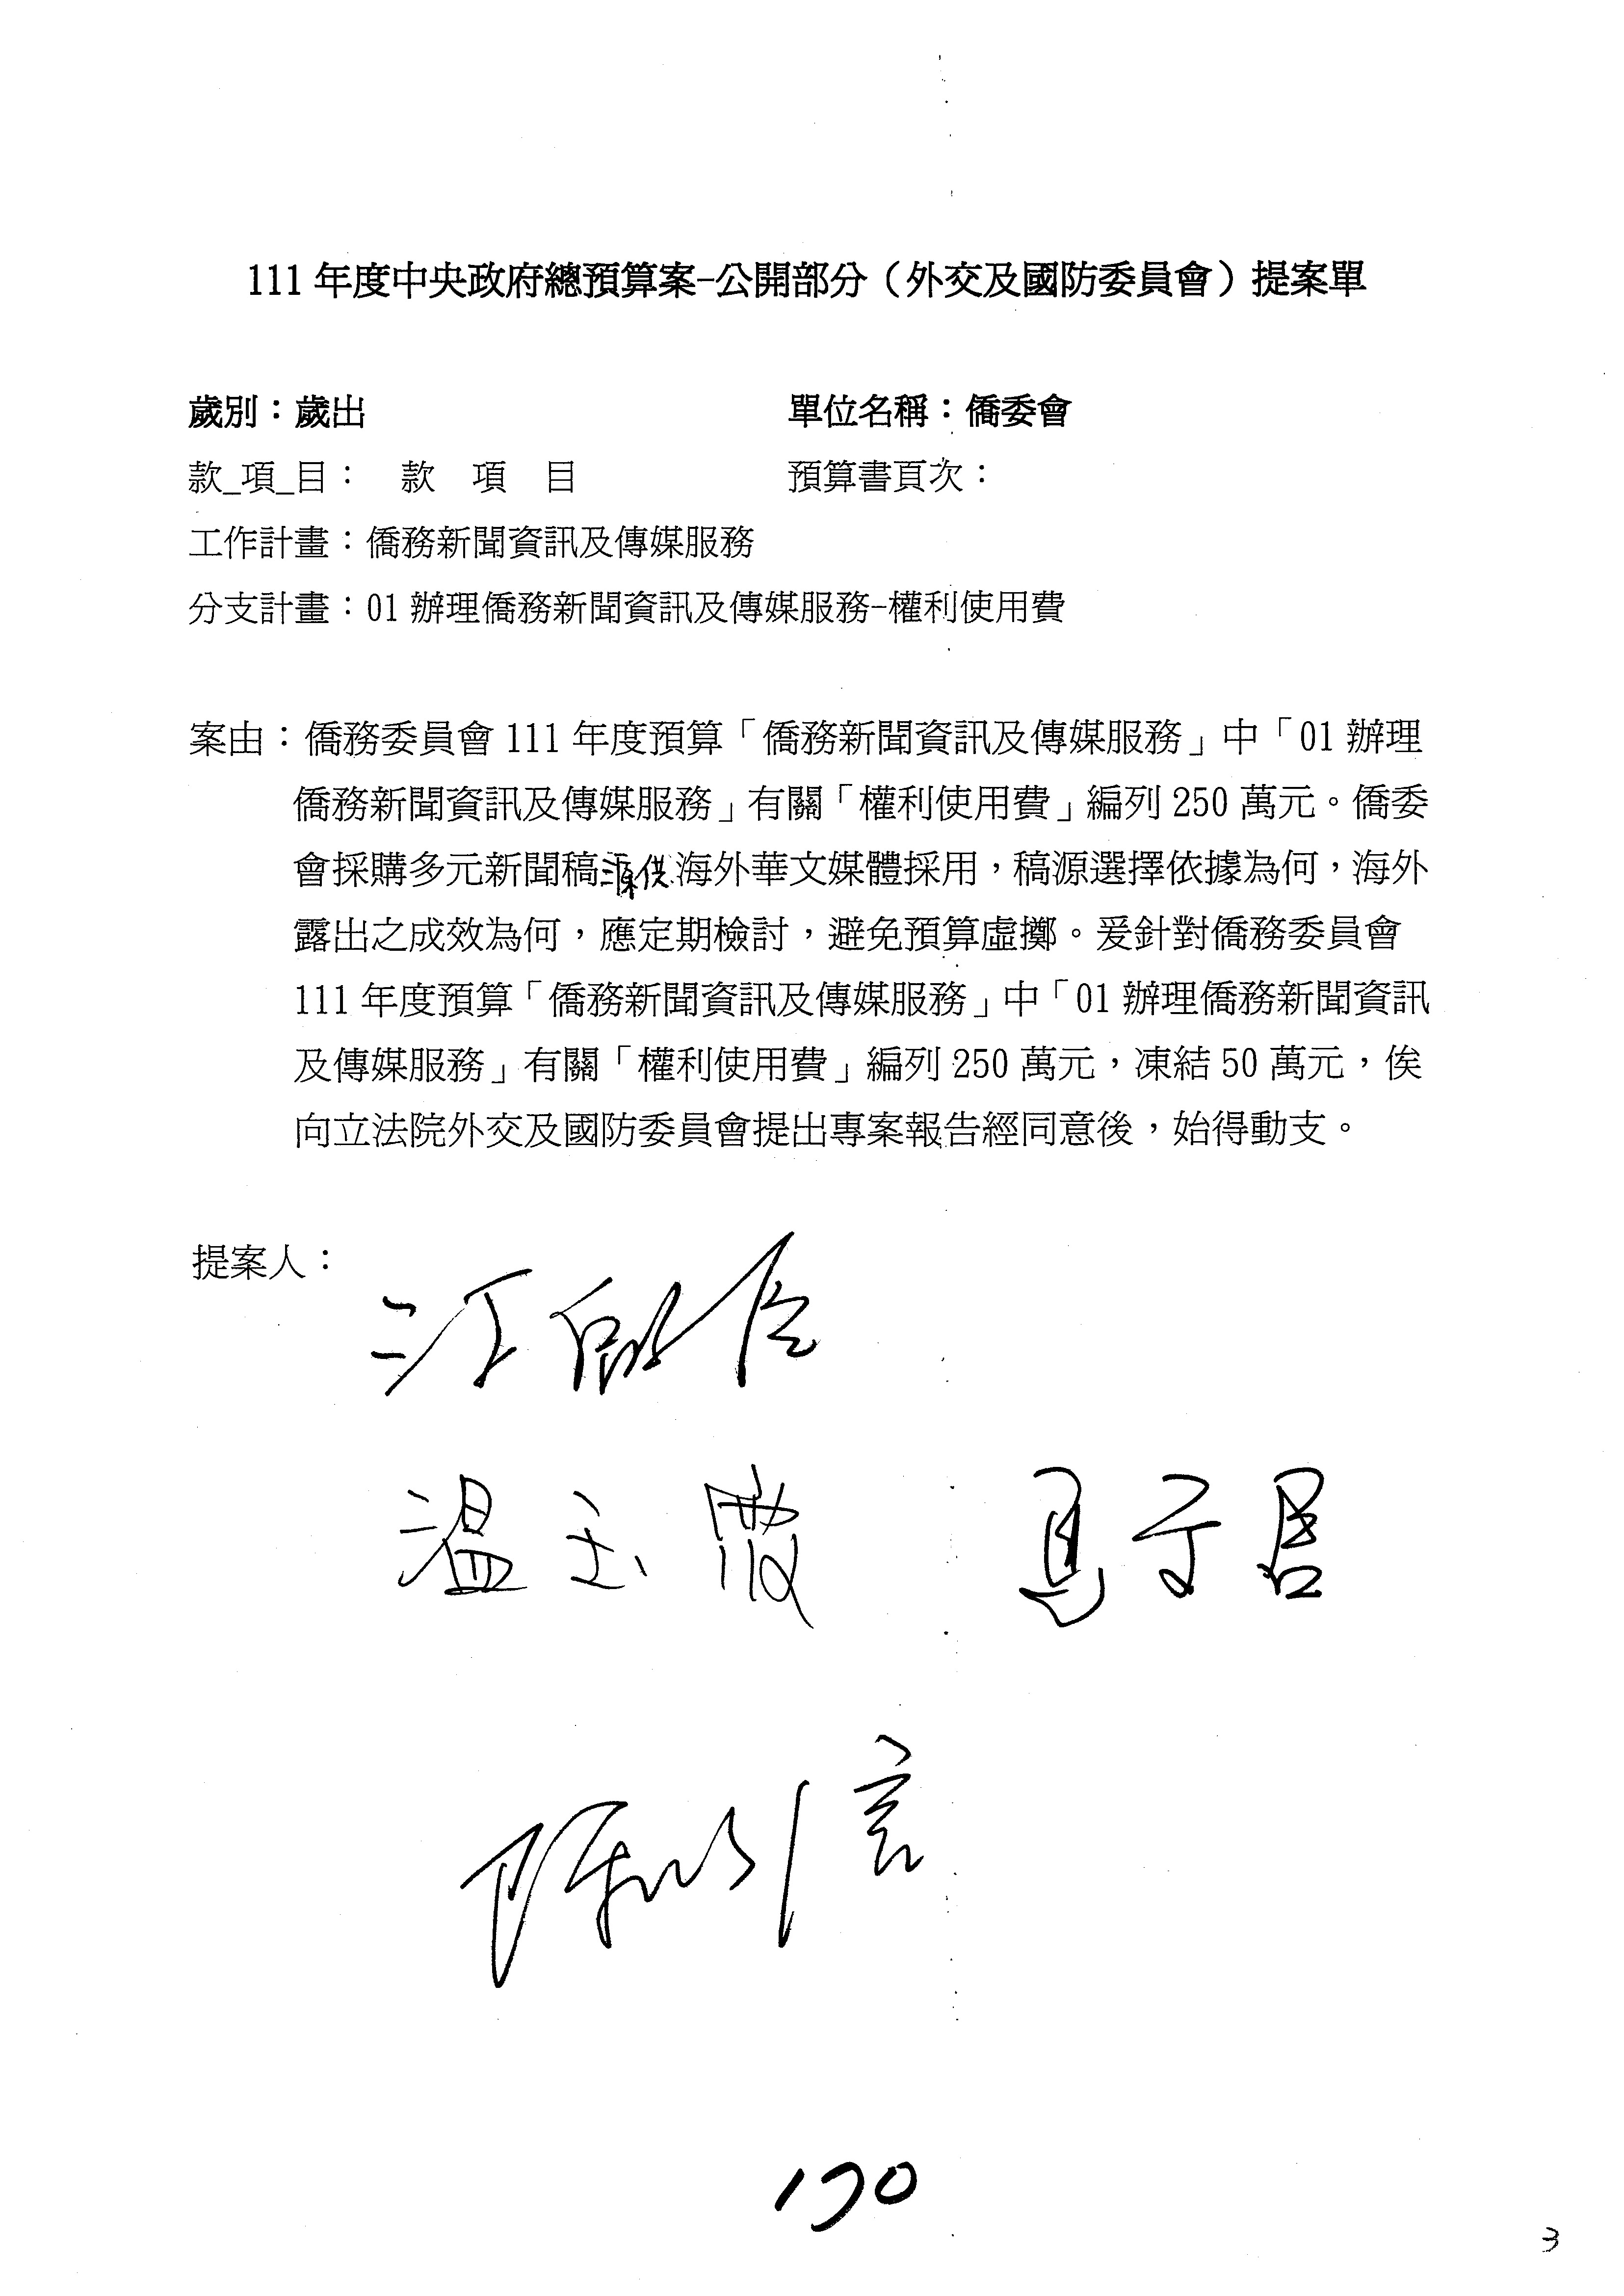 111 年度中央政府總預算案-公開部分（外交及國防委員會）提案單
歲別：歲出 單位名稱：僑委會
款_項_目： 款 項 目 預算書頁次：
工作計畫：僑務新聞資訊及傳媒服務
分支計畫：01 辦理僑務新聞資訊及傳媒服務-權利使用費
案由：僑務委員會 111 年度預算「僑務新聞資訊及傳媒服務」中「01 辦理
僑務新聞資訊及傳媒服務」有關「權利使用費」編列 250 萬元。僑委
會採購多元新聞稿源供海外華文媒體採用，稿源選擇依據為何，海外
露出之成效為何，應定期檢討，避免預算虛擲。爰針對僑務委員會
111 年度預算「僑務新聞資訊及傳媒服務」中「01 辦理僑務新聞資訊
及傳媒服務」有關「權利使用費」編列 250 萬元，凍結 50 萬元，俟
向立法院外交及國防委員會提出專案報告經同意後，始得動支。
提案人：
江啟臣
溫玉霞 馬文君
陳以信
170
3